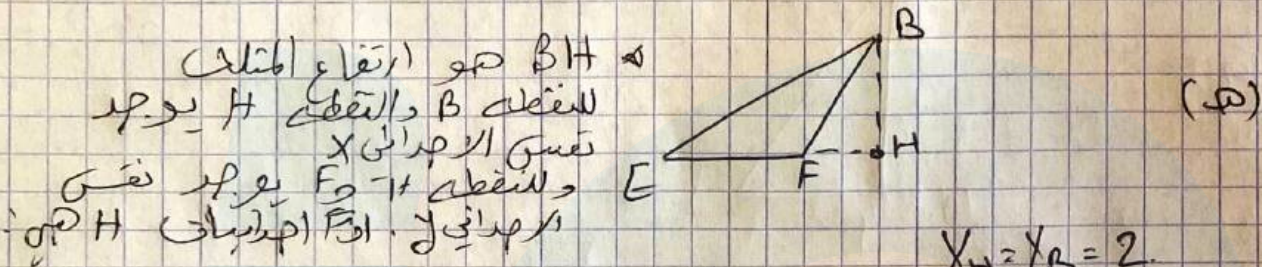 (هـ)
* BH هو ارتفاع المثلث
للنقطه B والنقطه H يوجد
نفس الاحداثي X
وللنقطه H و F يوجد نفس
الاحداثي y. اذا احداثيات H هي:
B
H
F
E
X_H = X_B = 2.